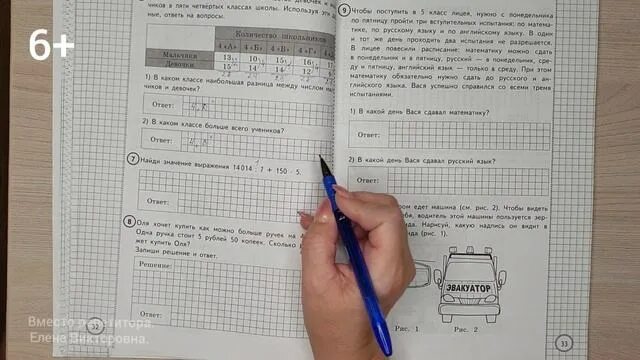 6+
чиков в пяти четвёртых классах школы. Используя эти
ные, ответь на вопросы.
Количество школьников
4 «А» 4 «Б» 4 «В» 4 «Г»
Мальчики 13 10 15 16
Девочки 15 14 12
1) В каком классе наибольшая разница между числом
чиков и девочек?
Ответ:
2) В каком классе больше всего учеников?
Ответ:
7 Найди значение выражения 14 014 : 7 + 150 · 5.
8 Оля хочет купить как можно больше ручек на
Одна ручка стоит 5 рублей 50 копеек. Сколько
жет купить Оля?
Запиши решение и ответ.
Решение:
Ответ:
32
9 Чтобы поступить в 5 класс лицея, нужно с понедельника
по пятницу пройти три вступительных испытания: по матема-
тике, по русскому языку и по английскому языку. В один
и тот же день проходить два испытания не разрешается.
В лицее повесили расписание: математику можно сдать
в понедельник и в пятницу, русский — в понедельник, сре-
ду и пятницу, английский язык — только в среду. При этом
математику обязательно нужно сдать до русского и ан-
глийского языка. Вася успешно справился со всеми тремя
испытаниями.
1) В какой день Вася сдавал математику?
Ответ:
2) В какой день Вася сдавал русский язык?
Ответ:
едет машина (см. рис. 2). Чтобы видеть
водитель этой машины пользуется зер-
Нарисуй, какую надпись он видит в
(рис. 1).
ЭВАКУАТОР
Рис. 1 Рис. 2
33
Вместо репетитора.
Елена Викторовна.